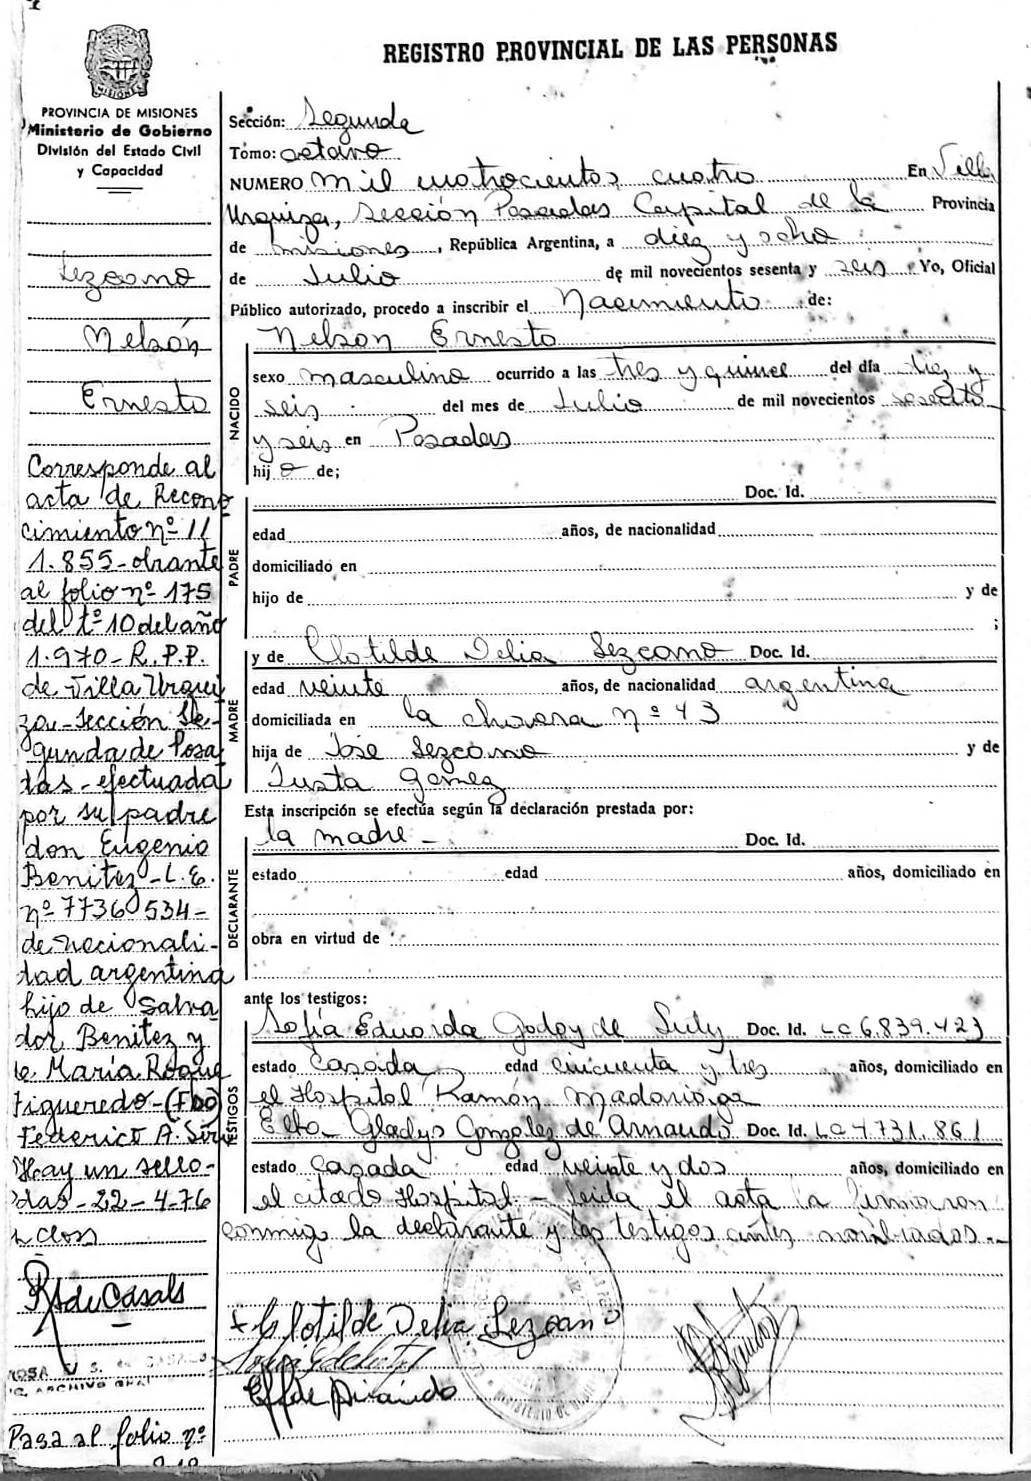 REGISTRO PROVINCIAL DE LAS PERSONAS
MISIONES
PROVINCIA DE MISIONES
Ministerio de Gobierno
División del Estado Civil
y Capacidad
Lezcano
Nelsón
Ernesto
Corresponde al
acta de Recono
cimiento nº 11
1.855-obrante
al folio nº 175
del tº 10 del año
1.970-R.P.P.
de Villa Urqui
za-Sección Se-
gunda de Posa
das-efectuada
por su padre
don Eugenio
Benitez-L.E.
nº 7736534-
de nacionali-
dad argentina
hijo de Salva
dor Benitez y
de María Roque
Figueredo-(Fdo)
Federico A.
Hay un sello-
das-22-4-76
RS de Casals
ROSA S. de
ARCHIVO GRAL
Pasa al folio nº
Sección: Segunda
Tómo: octavo
NUMERO mil cuatrocientos cuatro En Villa
Urquiza, Sección Posadas Capital de la Provincia
de misiones, República Argentina, a diez y ocho
de Julio de mil novecientos sesenta y seis Yo, Oficial
Público autorizado, procedo a inscribir el Nacimiento de:
NACIDO
Nelson Ernesto
sexo masculino ocurrido a las tres y quince del día diez y
seis del mes de Julio de mil novecientos sesenta
y seis en Posadas
hijo de;
PADRE
Doc. Id.
edad años, de nacionalidad
domiciliado en
hijo de y de
;
MADRE
y de Clotilde Delia Lezcano Doc. Id.
edad veinte años, de nacionalidad argentina
domiciliada en la chacra nº 43
hija de José Lezcano y de
Justa Gomez
Esta inscripción se efectúa según la declaración prestada por:
DECLARANTE
la madre - Doc. Id.
estado edad años, domiciliado en
obra en virtud de
ante los testigos:
TESTIGOS
Sofía Eduarda Godoy de Doc. Id. LC 6.839.423
estado Casada edad cincuenta y tres años, domiciliado en
el Hospital Ramón Madariaga
Elba Gladys Gonzalez de Amaudo Doc. Id. LC 4.731.861
estado Casada edad veinte y dos años, domiciliado en
el citado Hospital - leída el acta la firmaron
conmigo la declarante y los testigos antes nombrados.-
Clotilde Delia Lezcano